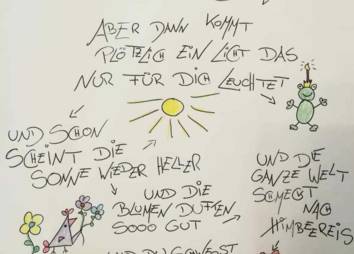 ABER DANN KOMMT
PLÖTZLICH EIN LICHT DAS
NUR FÜR DICH LEUCHTET
UND SCHON
SCHEINT DIE
SONNE WIEDER HELLER
UND DIE
BLUMEN DUFTEN
SOOO GUT
UND DIE
GANZE WELT
SCHMECKT
NACH
HIMBEEREIS
UND DU